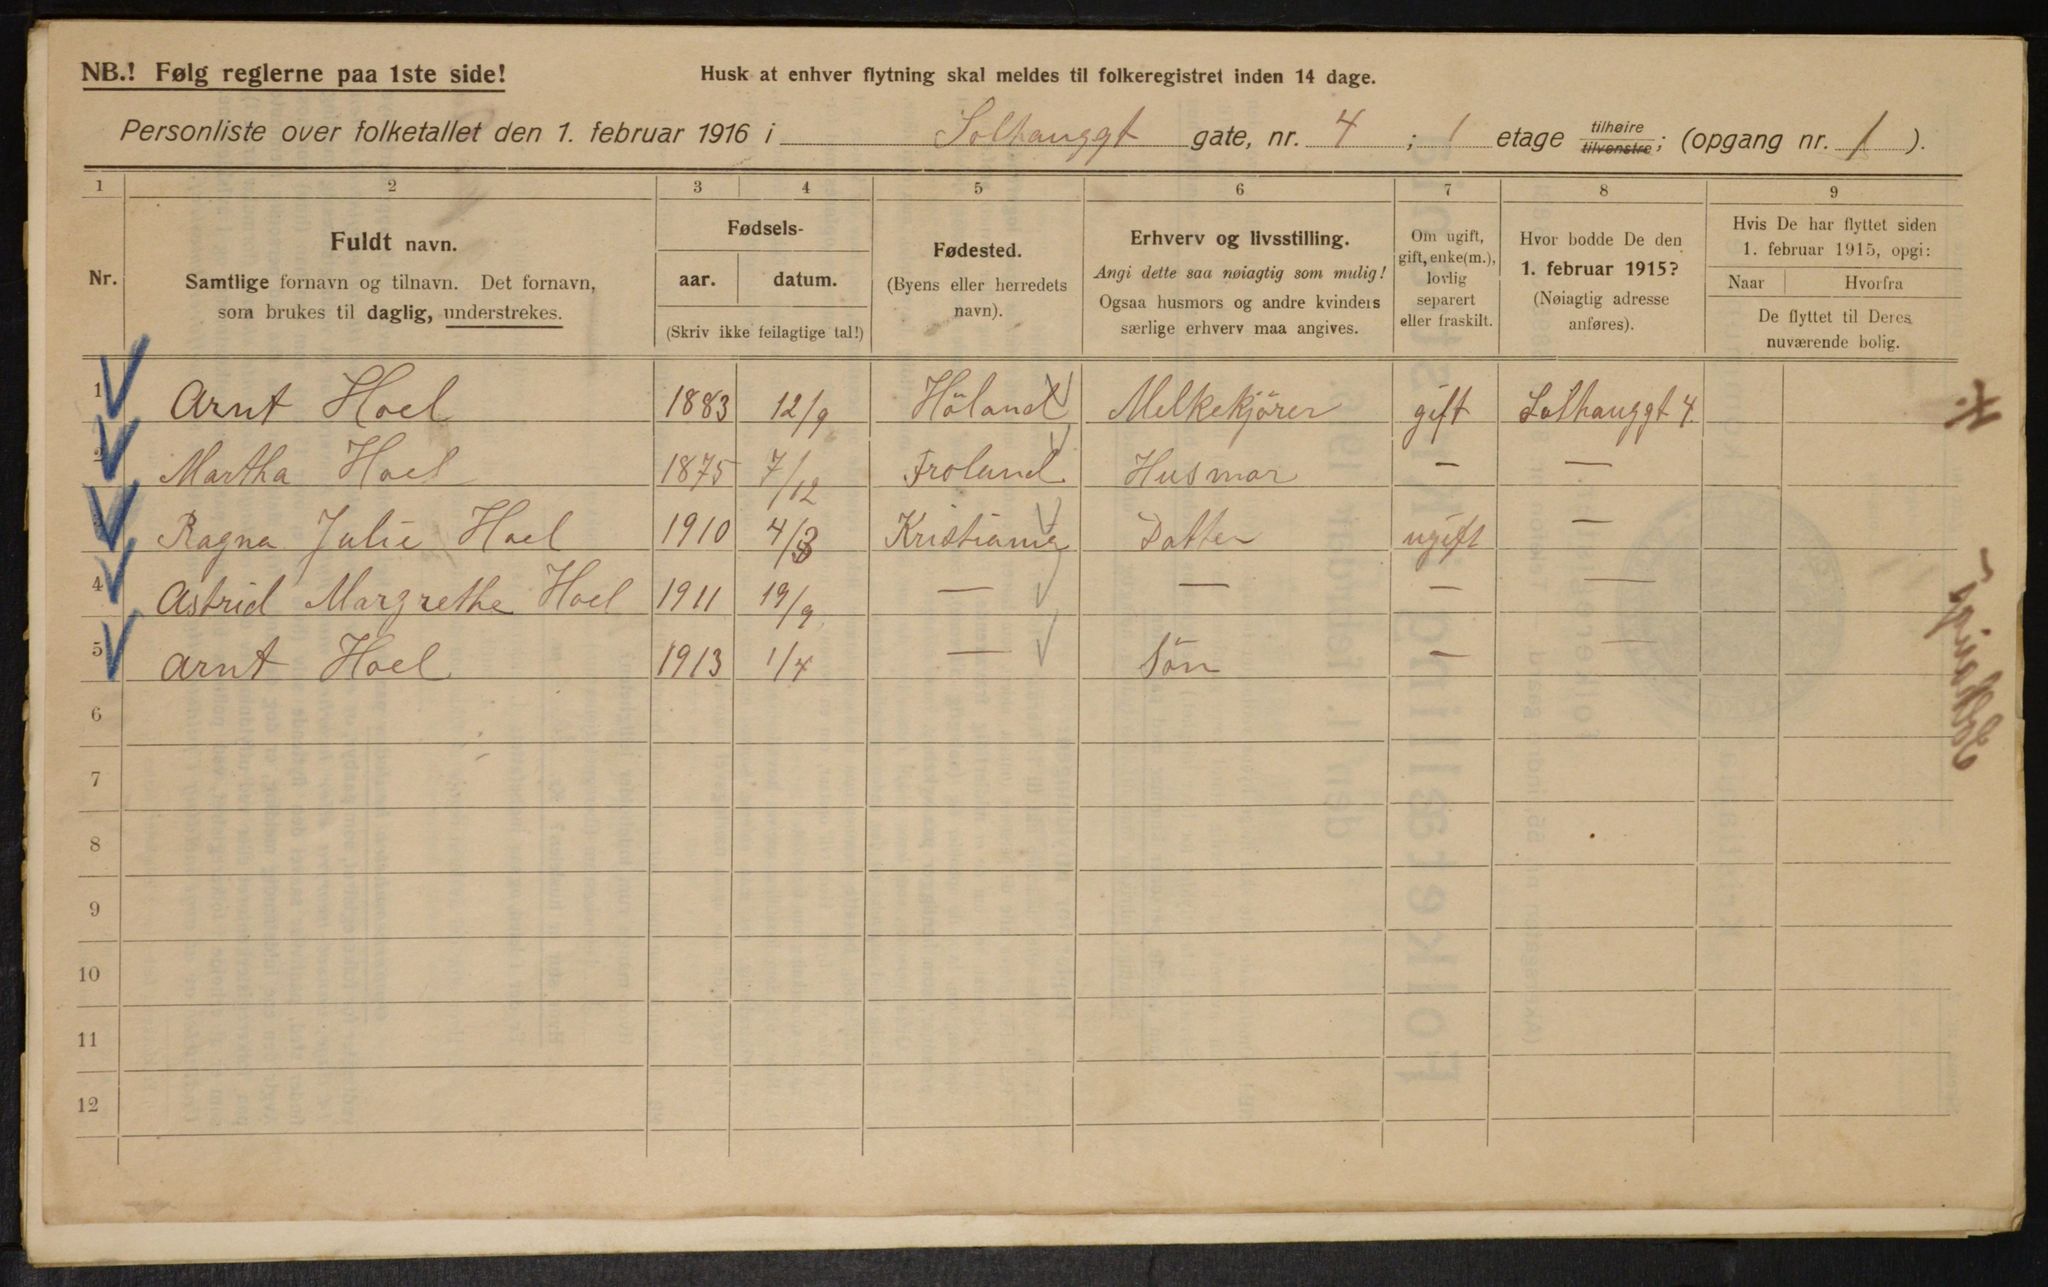 NB.! Følg reglerne paa 1ste side!
Husk at enhver flytning skal meldes til folkeregistret inden 14 dage.
Personliste over folketallet den 1. februar 1916 i Solhauggt gate, nr. 4 ; 1 etage tilhøire tilvenstre; (opgang nr. 1 ).
1 2 3 4 5 6 7 8 9
Nr.
Fuldt navn.
Samtlige fornavn og tilnavn. Det fornavn,
som brukes til daglig, understrekes.
Fødsels-
aar. datum.
(Skriv ikke feilagtige tal!)
Fødested.
(Byens eller herredets
navn).
Erhverv og livsstilling.
Angi dette saa nøiagtig som mulig!
Ogsaa husmors og andre kvinders
særlige erhverv maa angives.
Om ugift,
gift, enke(m.),
lovlig
separert
eller fraskilt.
Hvor bodde De den
1. februar 1915?
(Nøiagtig adresse
anføres).
Hvis De har flyttet siden
1. februar 1915, opgi:
Naar Hvorfra
De flyttet til Deres
nuværende bolig.
1 Arnt Hoel 1883 12/9 Höland Melkekjörer gift Solhauggt 4.
2 Martha Hoel 1875 7/12 Froland Husmor — —
3 Ragna Julie Hoel 1910 4/3 Kristiania Datter ugift —
4 Astrid Margrethe Hoel 1911 19/9 — — — —
5 Arnt Hoel 1913 1/4 — Sön — —
6
7
8
9
10
11
12